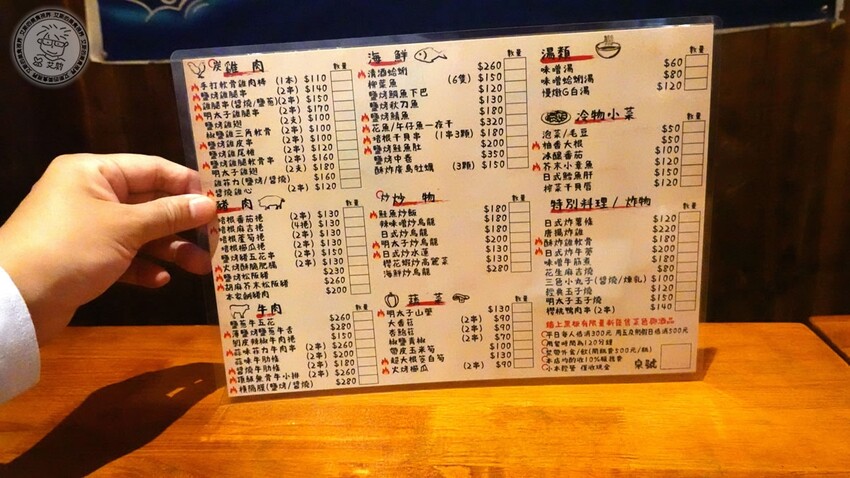 炭 雞肉 數量
手打軟骨雞肉棒 (1本) $110
鹽烤雞腿串 (2串) $140
雞腿串(醬燒/鹽蔥) (2串) $150
明太子雞腿串 (2串) $170
鹽烤雞翅 (2支) $100
椒鹽雞三角軟骨 (2串) $130
鹽烤雞皮串 (2串) $100
鹽烤雞尾椎 (2串) $130
鹽烤雞腿軟骨串 (2串) $150
明太子雞翅 (2支) $180
雞菲力(鹽烤/醬燒) $160
醬燒雞心 (2串) $120
豬肉 數量
培根番茄捲 (2串) $130
培根麻吉捲 (4捲) $130
培根蘆筍捲 (2串) $130
培根櫛瓜捲 (2串) $130
鹽烤豬五花串 (2串) $150
火烤酥脆肥腸 $230
鹽烤松阪豬 $260
胡麻芥末松阪豬 $260
本家鹹豬肉 $200
牛肉 數量
鹽蔥牛五花 $260
薄鹽烤鹽蔥牛舌 $280
剝皮辣椒牛肉捲 $150
蒜味菲力牛肉串 (2串) $260
蒜味牛肋條 (2串) $260
醬燒牛肋條 (2串) $260
頂級無骨牛小排 (2串) $260
橫膈膜(鹽烤/醬燒) $280
海鮮 數量
清酒蛤蜊 $260
柳葉魚 (6隻) $150
鹽烤鯛魚下巴 $150
鹽烤秋刀魚 $150
鹽烤鯖魚 $180
花魚/午仔魚一夜干 $320
培根干貝串 (1串3顆) $180
鹽烤鮭魚肚 $200
鹽烤中卷 $350
酥炸廣島牡蠣 (3顆) $150
炒物 數量
鮭魚炒飯 $180
辣味噌炒烏龍 $180
日式炒烏龍 $180
明太子炒烏龍 $200
日式炒水蓮 $130
櫻花蝦炒高麗菜 $180
海鮮炒烏龍 $280
蔬菜 數量
明太子山藥 $130
大香菇 (2串) $90
杏鮑菇 (2串) $90
椒鹽青椒 (2串) $90
帶皮玉米筍 $100
超大根茭白筍 $100
火烤櫛瓜 (2串) $90
湯麵 數量
味噌湯 $60
味噌蛤蜊湯 $80
慢燉G白湯 $120
冷物小菜 數量
泡菜/毛豆 $50
柚香大根 $50
冰釀番茄 $100
芥末小章魚 $50
日式鱈魚肝 $150
榨菜干貝唇 $120
特別料理/炸物 數量
日式炸薯條 $120
唐揚炸雞 $220
酥炸雞軟骨 $160
日式炸牛蒡 $200
味噌牛筋煮 $180
花生麻吉燒 $80
三色小丸子(醬燒/煉乳) $100
經典玉子燒 $120
明太子玉子燒 $150
櫻桃鴨肉串 (2串) $140
牆上黑板有限量新鮮貨菜色跟酒品
平日每人低消300元 周五及例假日低消500元
用餐時間為120分鐘
禁帶外食/飲(開瓶費500元/瓶)
本店均酌收10%服務費
小本經營 僅收現金
桌號